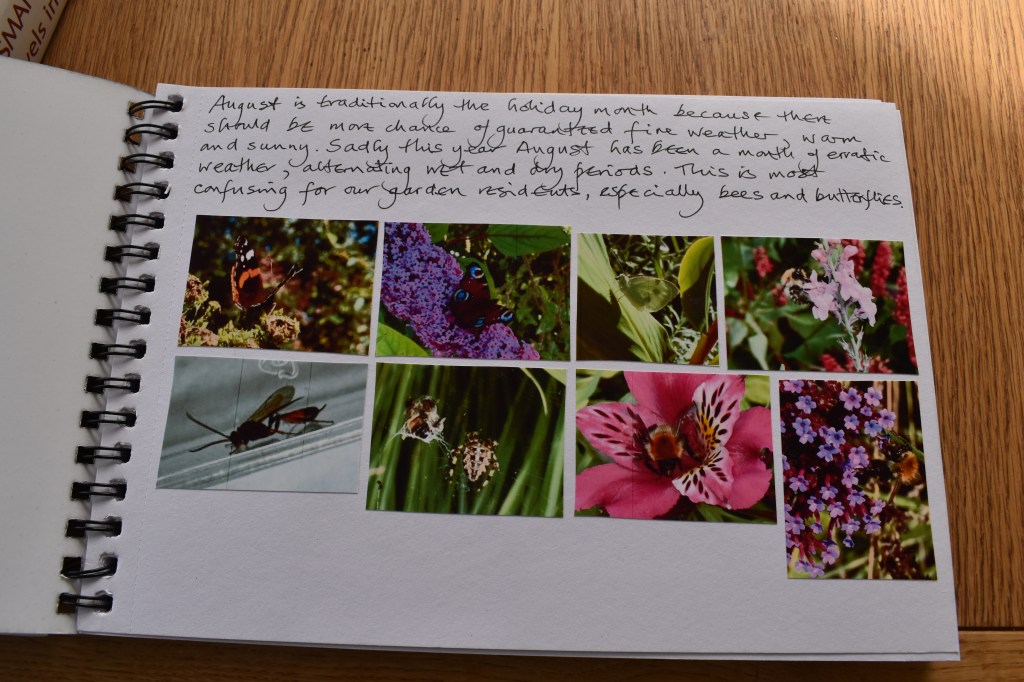 SMAR
els in
August is traditionally the holiday month because there
should be more chance of guaranteed fine weather, warm
and sunny. Sadly this year August has been a month of erratic
weather, alternating wet and dry periods. This is most
confusing for our garden residents, especially bees and butterflies.